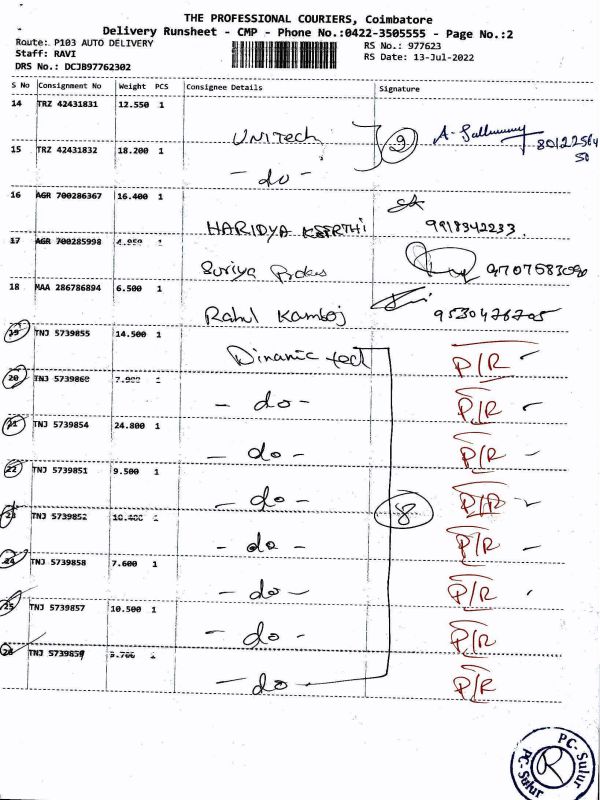 THE PROFESSIONAL COURIERS, Coimbatore
Delivery Runsheet - CMP - Phone No.:0422-3505555 - Page No.:2
Route: P103 AUTO DELIVERY
RS No.: 977623
Staff: RAVI
RS Date: 13-Jul-2022
DRS No.: DCJB97762302
S No Consignment No Weight PCS Consignee Details Signature
14 TRZ 42431831 12.550 1
UNITech 9
15 TRZ 42431832 18.200 1
- do -
16 AGR 700286367 16.400 1
HARIDYA KEERTHI 9918342233.
17 AGR 700285998 1
Suriya 9707583090
18 MAA 286786894 6.500 1
Rahul Kamboj 9530476705
19 TNJ 5739855 14.500 1
Dinamic ted P/R
20 TNJ 5739860 7.900 1
- do - P/R
21 TNJ 5739854 24.800 1
- do - P/R
22 TNJ 5739851 9.500 1
- do - 8 P/R
23 TNJ 5739852 10.400 1
- do - P/R
24 TNJ 5739858 7.600 1
- do - P/R
25 TNJ 5739857 10.500 1
- do - P/R
26 1
- do - P/R
PC- Sulur
R
PC- Sulur